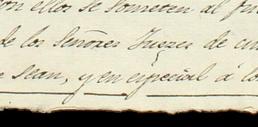 on ellos se someten al fu
de los Señores Jueces de cu
e sean, y en especial á lo